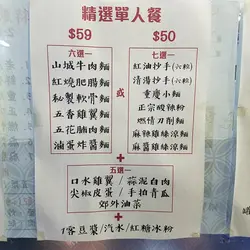 精選單人餐
$59
$50
六選一
七選一
山城牛肉麵
紅燒肥腸麵
秘製軟骨麵
五香雞翼麵
五花腩肉麵
滷蛋炸醬麵
或
紅油抄手(六粒)
清湯抄手(六粒)
重慶小麵
正宗酸辣粉
燃情刀削麵
麻辣雞絲涼麵
麻醬雞絲涼麵
+
五選一
口水雞翼/蒜泥白肉
尖椒皮蛋/手拍青瓜
郊外油菜
+
1客豆漿/汽水/紅糖冰粉